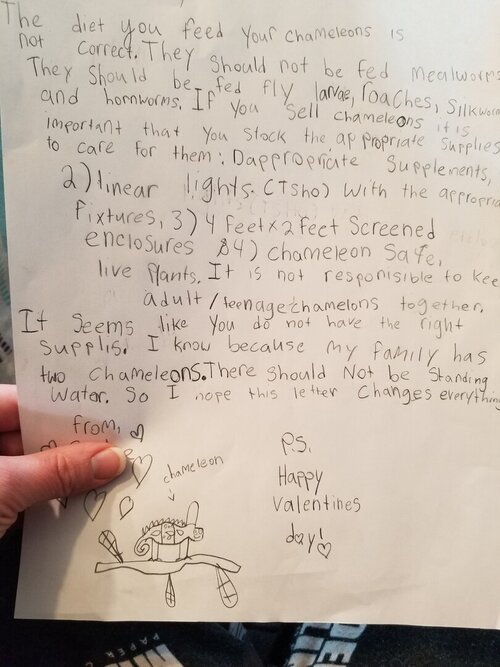 The diet you feed your chameleons is
not correct. They should not be fed mealworms
They should be fed fly larvae, roaches, silkworm
and hornworms. If you sell chameleons it is
important that you stock the appropriate supplies
to care for them: 1) appropriate supplements,
2) linear lights. (T5ho) with the appropria
fixtures, 3) 4 feet x 2 feet screened
enclosures & 4) chameleon safe,
live plants. It is not responisible to kee
adult/teenage chamelons together.
It seems like you do not have the right
supplis. I know because my family has
two chameleons. There should Not be standing
water. So I hope this letter changes everythin
from,
chameleon
P.S.
Happy
Valentines
day!
PAPER C